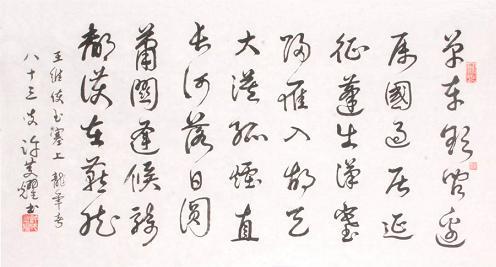 單車欲問邊
屬國過居延
征蓬出漢塞
歸雁入胡天
大漠孤煙直
長河落日圓
蕭關逢候騎
都護在燕然
王維使至塞上 龍年春
八十三叟 許 耀書